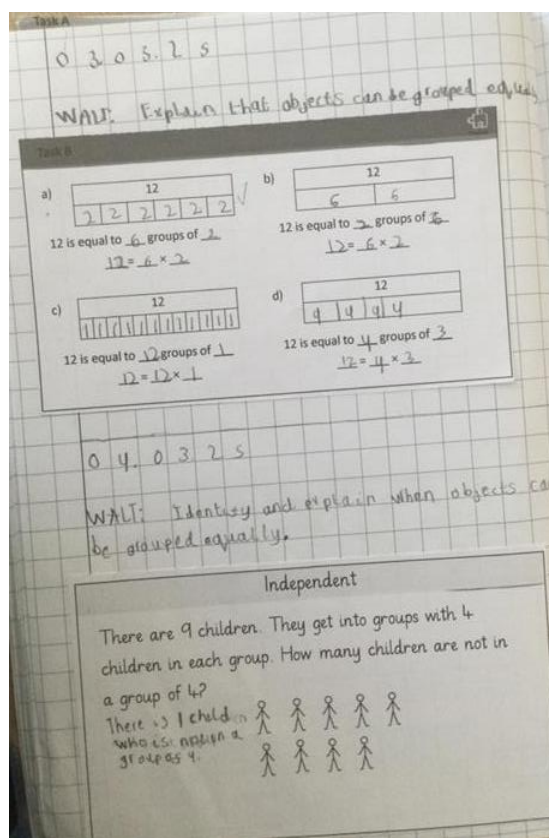 Task A
0 3 . 0 3 . 2 5
WALT: Explain that objects can be grouped equally
Task B
a)
12
2 2 2 2 2 2
12 is equal to 6 groups of 2
12 = 6 × 2
b)
12
6 6
12 is equal to 2 groups of 6
12 = 6 × 2
c)
12
1 1 1 1 1 1 1 1 1 1 1 1
12 is equal to 12 groups of 1
12 = 12 × 1
d)
12
4 4 4
12 is equal to 4 groups of 3
12 = 4 × 3
0 4 . 0 3 2 5
WALT: Identify and explain when objects ca
be grouped equally.
Independent
There are 9 children. They get into groups with 4
children in each group. How many children are not in
a group of 4?
There is 1 child
who is not in a
group of 4.